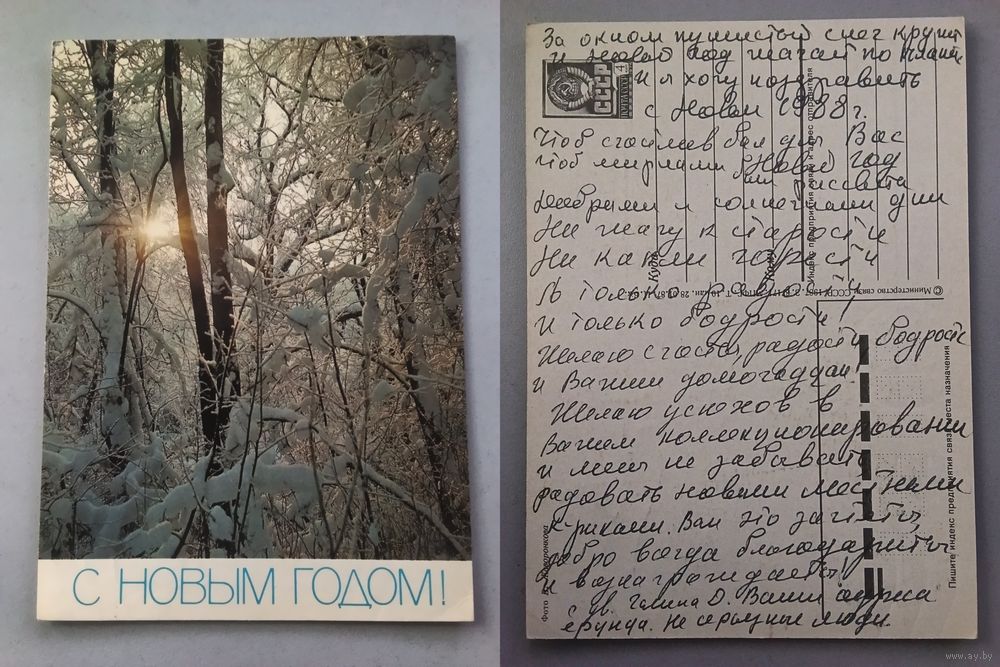 С НОВЫМ ГОДОМ!
За окном пушистый снег кружит
и Новый год шагает по
И я хочу поздравить
с Новым 1988 г.
Чтоб счастлив был для Вас
Чтоб мирными Новый год
были рассветы
Добрыми и солнечными дни
Ни шагу к старости
Ни капли горести
А только радости
И только бодрости
Желаю счастья, радости, бодрости
и Вашим домочадцам!
Желаю успехов в
Вашем коллекционировании
и меня не забывать
радовать новыми местными
к-риками. Вам это зачтётся
добро всегда благодарить
и вознаграждать!
С ув. Галина D. Ваши
ерунда. Не серьёзные люди.
ПОЧТА СССР 4
Куда
Кому
Индекс предприятия связи и адрес отправителя
© Министерство связи СССР, 1987.
Пишите индекс предприятия связи места назначения
Фото
www.ay.by